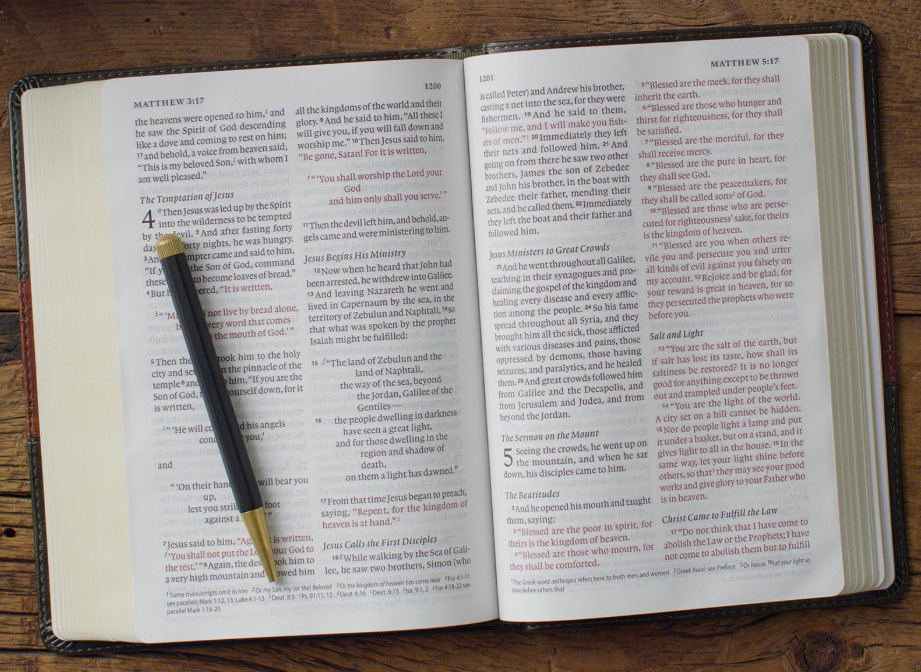 MATTHEW 3:17
1200
the heavens were opened to him,¹ and
he saw the Spirit of God descending
like a dove and coming to rest on him;
¹⁷ and behold, a voice from heaven said,
“This is my beloved Son,² with whom I
am well pleased.”
The Temptation of Jesus
4 Then Jesus was led up by the Spirit
into the wilderness to be tempted
by the devil. ² And after fasting forty
forty nights, he was hungry.
tempter came and said to him,
the Son of God, command
to become loaves of bread.”
⁴ But “It is written,
not live by bread alone,
very word that comes
the mouth of God.’”
⁵ Then the took him to the holy
city and set on the pinnacle of the
temple ⁶ and him, “If you are the
Son of God, yourself down, for it
is written,
“‘He will his angels
you,’
and
“‘On their will bear you
up,
lest you foot
against
⁷ Jesus said to him, is written,
‘You shall not put the your God to
the test.’” ⁸ Again, the took him to
a very high mountain and showed him
all the kingdoms of the world and their
glory. ⁹ And he said to him, “All these I
will give you, if you will fall down and
worship me.” ¹⁰ Then Jesus said to him,
“Be gone, Satan! For it is written,
“‘You shall worship the Lord your
God
and him only shall you serve.’”
¹¹ Then the devil left him, and behold, an-
gels came and were ministering to him.
Jesus Begins His Ministry
¹² Now when he heard that John had
been arrested, he withdrew into Galilee.
¹³ And leaving Nazareth he went and
lived in Capernaum by the sea, in the
territory of Zebulun and Naphtali, ¹⁴ so
that what was spoken by the prophet
Isaiah might be fulfilled:
¹⁵ “The land of Zebulun and the
land of Naphtali,
the way of the sea, beyond
the Jordan, Galilee of the
Gentiles—
¹⁶ the people dwelling in darkness
have seen a great light,
and for those dwelling in the
region and shadow of
death,
on them a light has dawned.”
¹⁷ From that time Jesus began to preach,
saying, “Repent, for the kingdom of
heaven is at hand.”³
Jesus Calls the First Disciples
¹⁸ While walking by the Sea of Gali-
lee, he saw two brothers, Simon (who
¹ Some manuscripts omit to him ² Or my Son, my (or the) Beloved ³ Or the kingdom of heaven has come near
see parallels Mark 1:12, 13; Luke 4:1-13 Deut. 8:3 Ps. 91:11, 12 Deut. 6:16 Deut. 6:13 Isa. 9:1, 2 For 4:18-22 see
parallel Mark 1:16-20
1201
MATTHEW 5:17
is called Peter) and Andrew his brother,
casting a net into the sea, for they were
fishermen. ¹⁹ And he said to them,
“Follow me, and I will make you fish-
ers of men.” ²⁰ Immediately they left
their nets and followed him. ²¹ And
going on from there he saw two other
brothers, James the son of Zebedee
and John his brother, in the boat with
Zebedee their father, mending their
nets, and he called them. ²² Immediately
they left the boat and their father and
followed him.
Jesus Ministers to Great Crowds
²³ And he went throughout all Galilee,
teaching in their synagogues and pro-
claiming the gospel of the kingdom and
healing every disease and every afflic-
tion among the people. ²⁴ So his fame
spread throughout all Syria, and they
brought him all the sick, those afflicted
with various diseases and pains, those
oppressed by demons, those having
seizures, and paralytics, and he healed
them. ²⁵ And great crowds followed him
from Galilee and the Decapolis, and
from Jerusalem and Judea, and from
beyond the Jordan.
The Sermon on the Mount
5 Seeing the crowds, he went up on
the mountain, and when he sat
down, his disciples came to him.
The Beatitudes
² And he opened his mouth and taught
them, saying:
³ “Blessed are the poor in spirit, for
theirs is the kingdom of heaven.
⁴ “Blessed are those who mourn, for
they shall be comforted.
⁵ “Blessed are the meek, for they shall
inherit the earth.
⁶ “Blessed are those who hunger and
thirst for righteousness, for they shall
be satisfied.
⁷ “Blessed are the merciful, for they
shall receive mercy.
⁸ “Blessed are the pure in heart, for
they shall see God.
⁹ “Blessed are the peacemakers, for
they shall be called sons² of God.
¹⁰ “Blessed are those who are perse-
cuted for righteousness’ sake, for theirs
is the kingdom of heaven.
¹¹ “Blessed are you when others re-
vile you and persecute you and utter
all kinds of evil against you falsely on
my account. ¹² Rejoice and be glad, for
your reward is great in heaven, for so
they persecuted the prophets who were
before you.
Salt and Light
¹³ “You are the salt of the earth, but
if salt has lost its taste, how shall its
saltiness be restored? It is no longer
good for anything except to be thrown
out and trampled under people’s feet.
¹⁴ “You are the light of the world.
A city set on a hill cannot be hidden.
¹⁵ Nor do people light a lamp and put
it under a basket, but on a stand, and it
gives light to all in the house. ¹⁶ In the
same way, let your light shine before
others, so that³ they may see your good
works and give glory to your Father who
is in heaven.
Christ Came to Fulfill the Law
¹⁷ “Do not think that I have come to
abolish the Law or the Prophets; I have
not come to abolish them but to fulfill
¹ The Greek word anthropoi refers here to both men and women ² Greek huioi; see Preface ³ Or house. ¹⁶ Let your light so
shine before others that